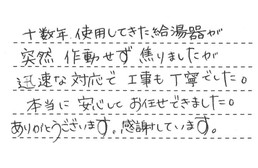 十数年、使用してきた給湯器が
突然 作動せず 焦りましたが
迅速な対応で 工事も丁寧でした。
本当に 安心して お任せできました。
ありがとうございます。感謝しています。